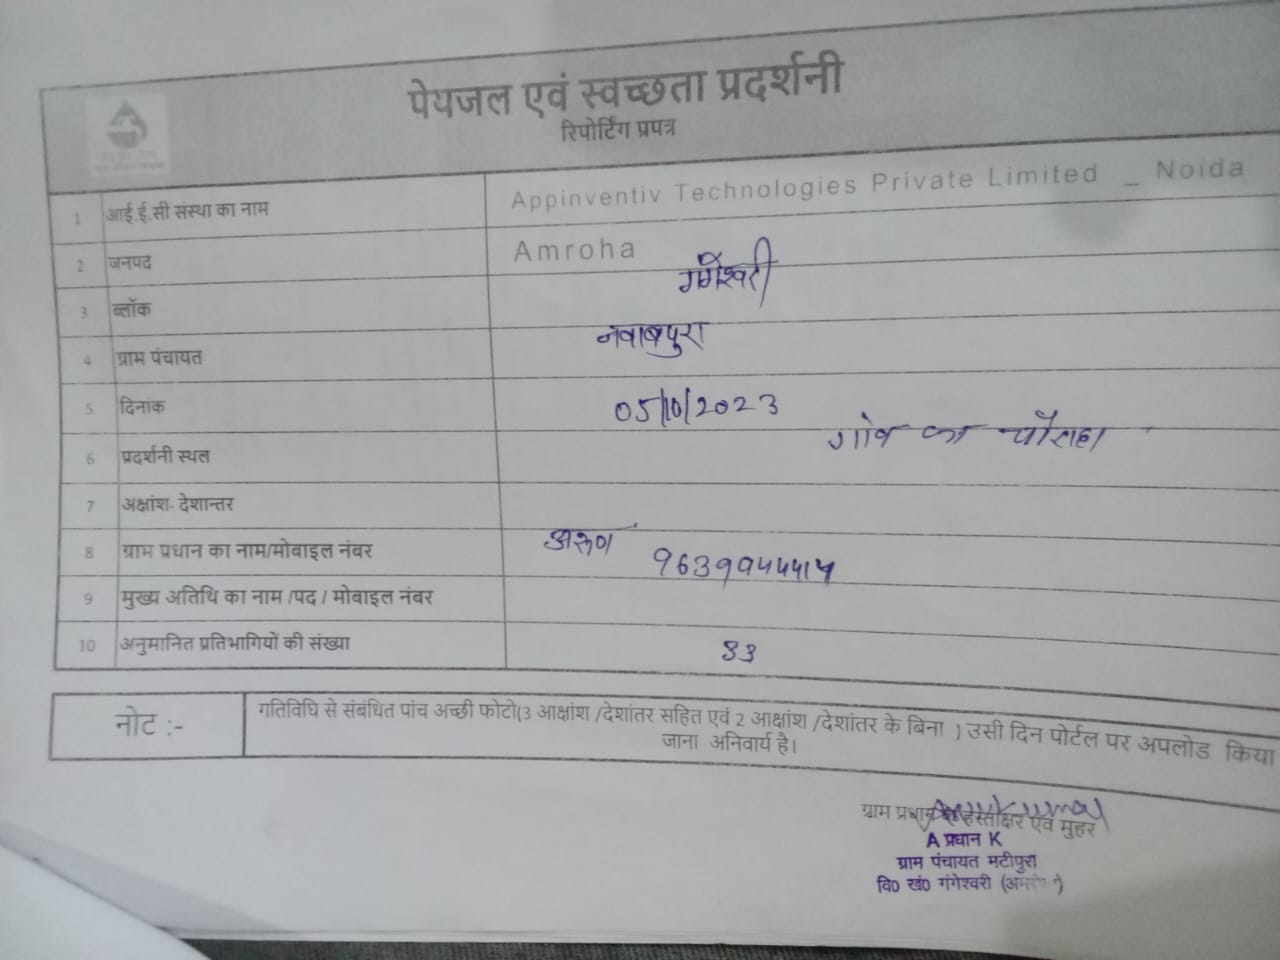 पेयजल एवं स्वच्छता प्रदर्शनी
रिपोर्टिंग प्रपत्र
1 आई.ई.सी संस्था का नाम Appinventiv Technologies Private Limited _ Noida
2 जनपद Amroha
3 ब्लॉक गंगेश्वरी
4 ग्राम पंचायत नवाबपुरा
5 दिनांक 05/10/2023
6 प्रदर्शनी स्थल गांव का चौराहा
7 अक्षांश- देशान्तर
8 ग्राम प्रधान का नाम/मोबाइल नंबर अरुण
9 मुख्य अतिथि का नाम /पद / मोबाइल नंबर
10 अनुमानित प्रतिभागियों की संख्या 83
नोट :- गतिविधि से संबंधित पांच अच्छी फोटो(3 आक्षांश /देशांतर सहित एवं 2 आक्षांश /देशांतर के बिना ) उसी दिन पोर्टल पर अपलोड किया
जाना अनिवार्य है।
ग्राम प्रधान के हस्ताक्षर एवं मुहर
A प्रधान K
ग्राम पंचायत मटीपुरा
वि० खं० गंगेश्वरी